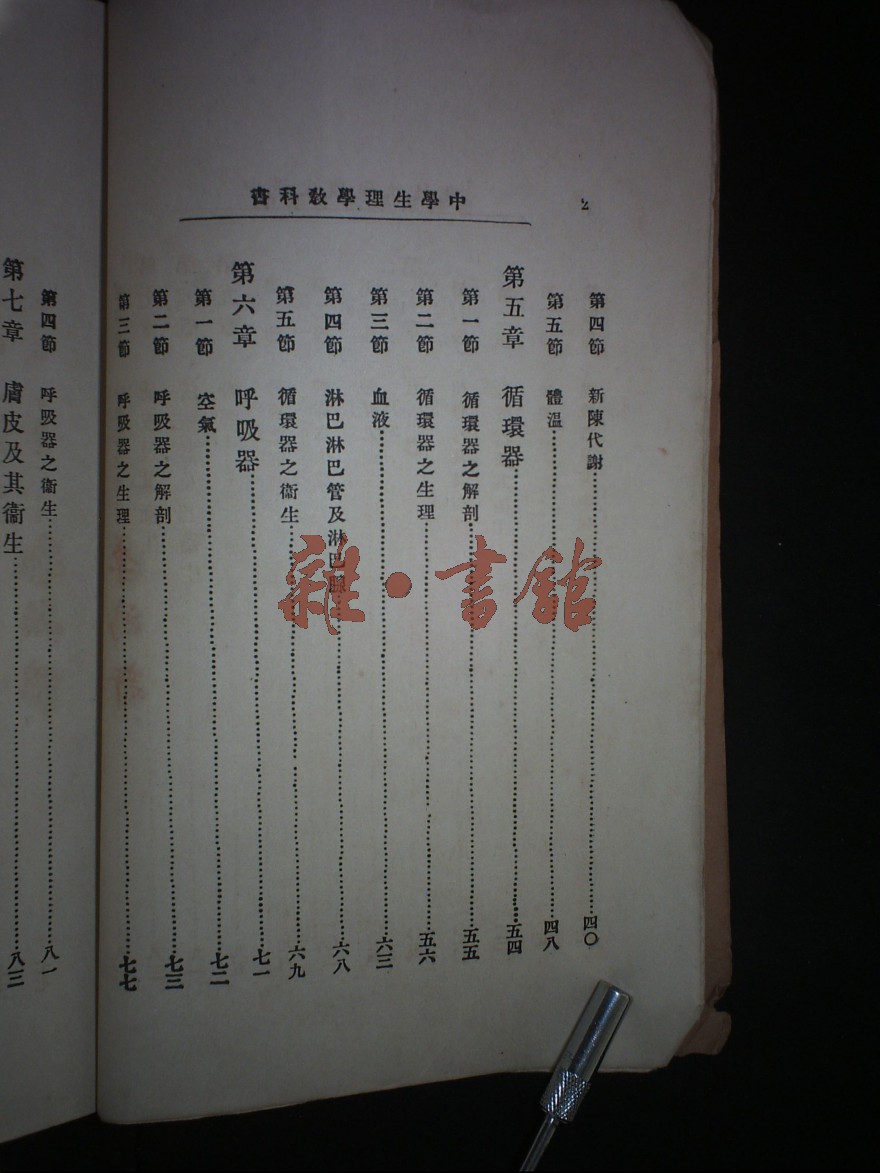 中學生理學教科書
2
第四節 新陳代謝 四〇
第五節 體温 四八
第五章 循環器 五四
第一節 循環器之解剖 五五
第二節 循環器之生理 五六
第三節 血液 六三
第四節 淋巴淋巴管及淋巴腺 六八
第五節 循環器之衞生 六九
第六章 呼吸器 七一
第一節 空氣 七二
第二節 呼吸器之解剖 七三
第三節 呼吸器之生理 七七
第四節 呼吸器之衞生 八一
第七章 膚皮及其衞生 八三
雜·書館